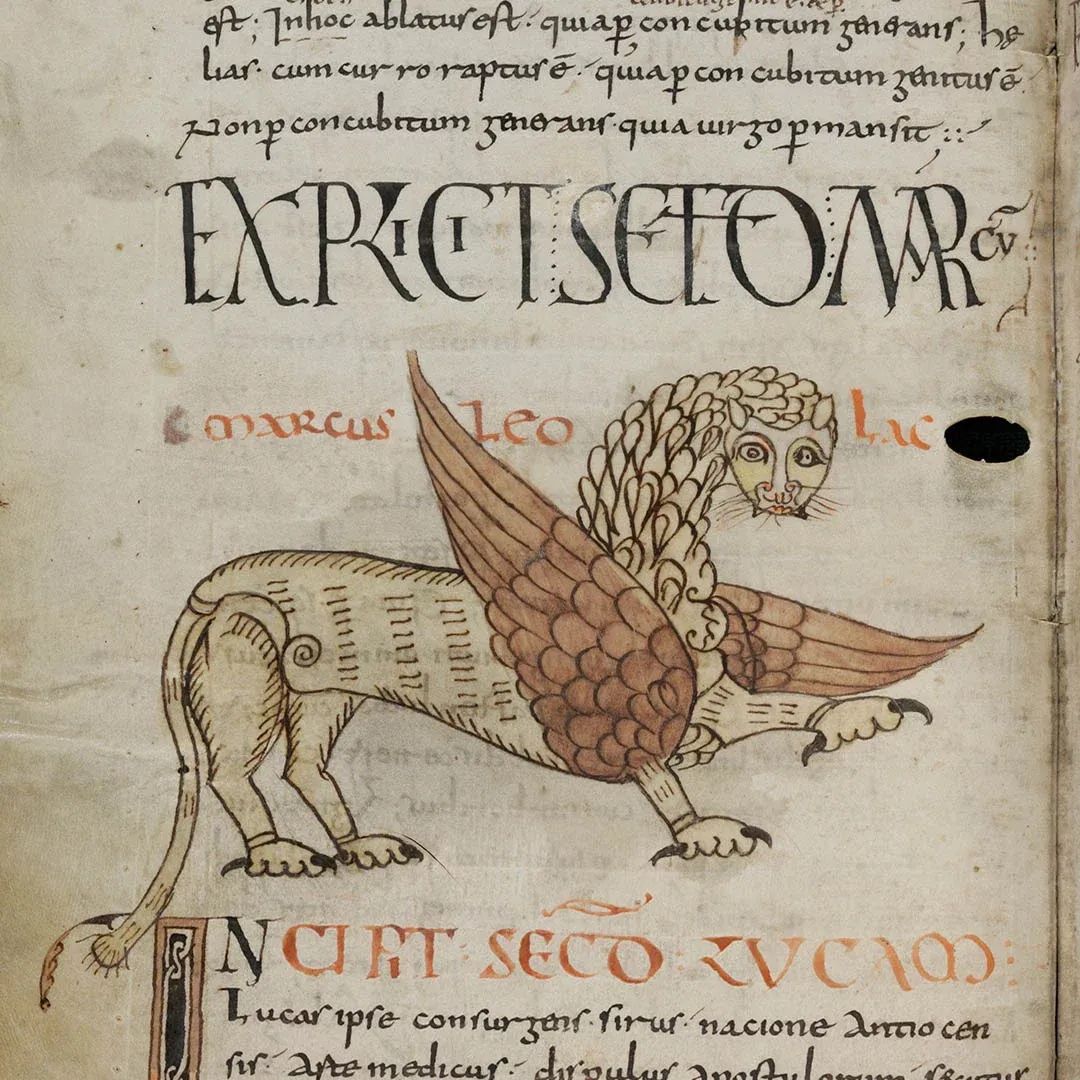 est; Inhoc ablatus est· quia ꝑ concubitum generans; he
lias· cum curro raptus ē· quia ꝑ con cubitum genitus ē
Non ꝑ concubitum generans· quia uirgo ꝑmansit
EXPLICIT SECTO MARCV̄
marcus Leo Lac
INCIPIT SECD̄ LVCAM
Lucas ipse consurgens· sirus· nacione Antiocen
sis· Arte medicus· discipulus Apostulorum secutus